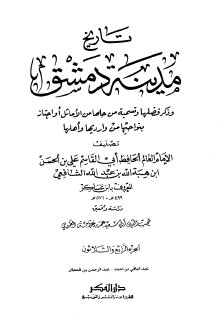 تاريخ
مدينة دمشق
وذكر فضلها وتسمية من حلها من الأماثل أو اجتاز
بنواحيها من وارديها وأهلها
تصنيف
الإمام العالم الحافظ أبي القاسم علي بن الحسن
ابن هبة الله بن عبد الله الشافعي
المعروف بابن عساكر
٤٩٩هـ - ٥٧١هـ
دراسة وتحقيق
محب الدين أبي سعيد عمر بن غرامة العمروي
الجزء الرابع والثلاثون
عبد الباقي بن أحمد - عبد الرحمن بن قحطان
دار الفكر
للطباعة والنشر والتوزيع